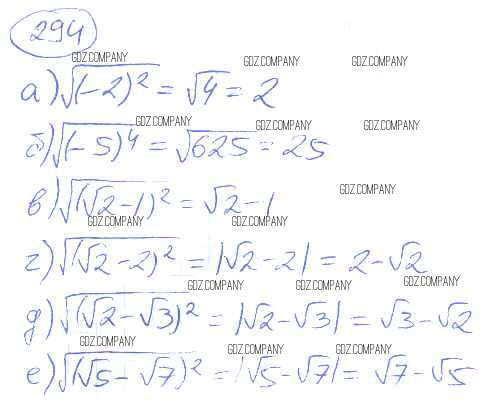 294
GDZ.COMPANY GDZ.COMPANY GDZ.COMPANY
а) √(-2)² = √4 = 2
GDZ.COMPANY GDZ.COMPANY GDZ.COMPANY
б) √(-5)⁴ = √625 = 25
GDZ.COMPANY
в) √(√2-1)² = √2-1
GDZ.COMPANY GDZ.COMPANY
г) √(√2-2)² = |√2-2| = 2-√2
GDZ.COMPANY GDZ.COMPANY GDZ.COMPANY
д) √(√2-√3)² = |√2-√3| = √3-√2
GDZ.COMPANY GDZ.COMPANY GDZ.COMPANY
е) √(√5-√7)² = |√5-√7| = √7-√5